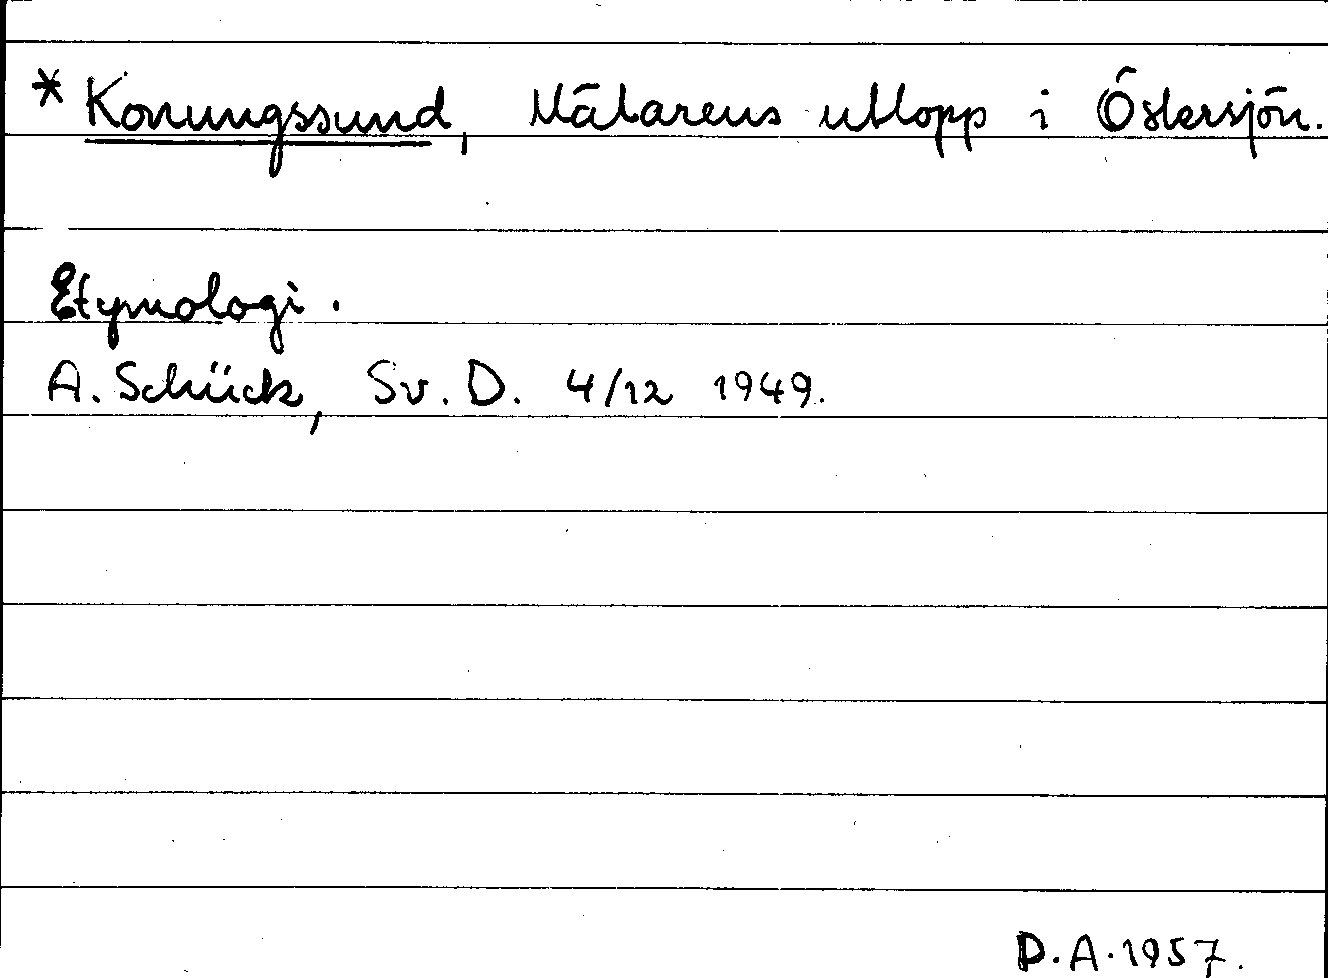 * Konungssund, Mälarens utlopp i Östersjön.
Etymologi.
A. Schück, Sv. D. 4/12 1949.
D.A. 1957.